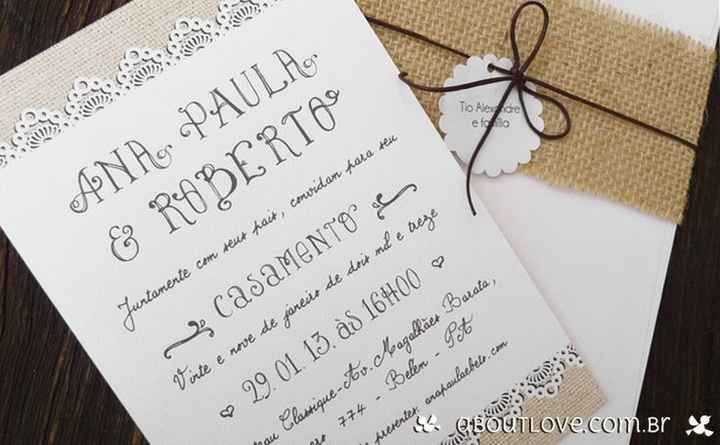 ANA PAULA
& ROBERTO
Juntamente com seus pais, convidam para seu
CASAMENTO
Vinte e nove de janeiro de dois mil e treze
29. 01. 13. às 16H00
Classique-Av. Magalhães Barata,
774 - Belém - PA
presentes: anapaulaebeto.com
Tio Alexandre
e família
aboutlove.com.br